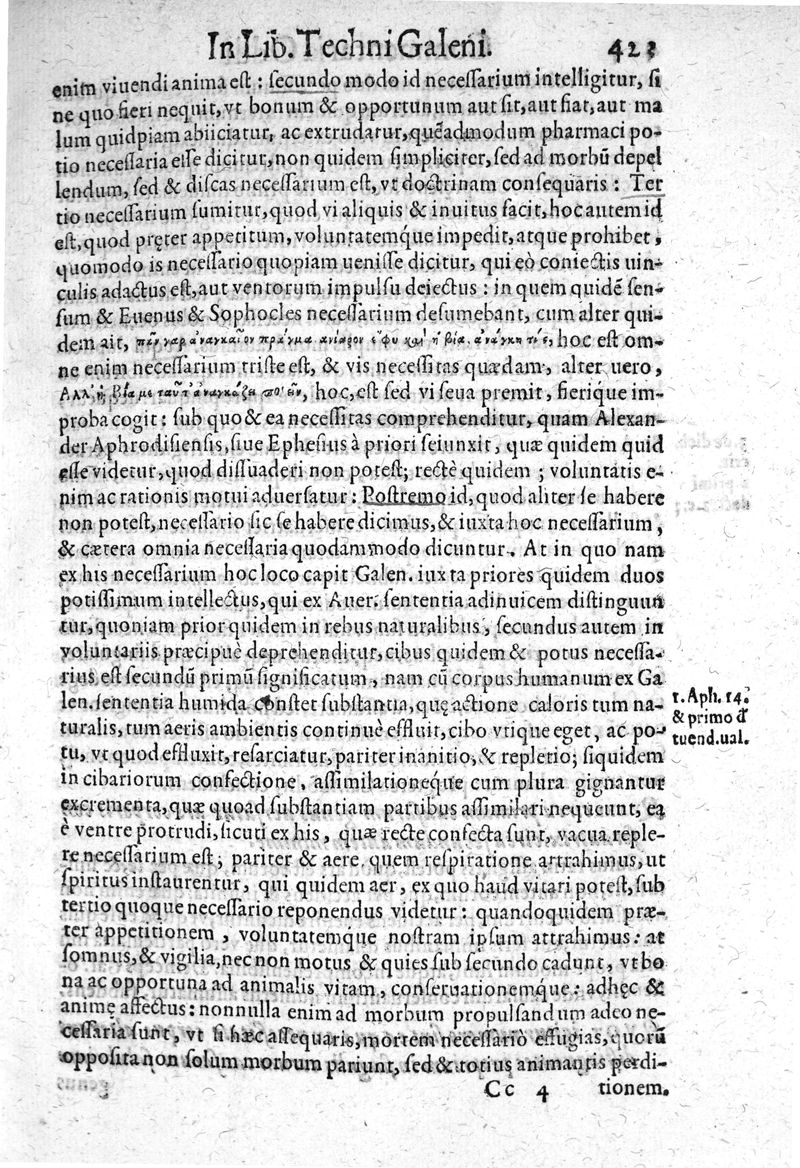 In Lib. Techni Galeni. 423
enim viuendi anima est : secundo modo id necessarium intelligitur, si
ne quo fieri nequit, vt bonum & opportunum aut sit, aut fiat, aut ma
lum quidpiam abiiciatur, ac extrudatur, quẽadmodum pharmaci po-
tio necessaria esse dicitur, non quidem simpliciter, sed ad morbũ depel
lendum, sed & discas necessarium est, vt doctrinam consequaris : Ter
tio necessarium sumitur, quod vi aliquis & inuitus facit, hoc autem id
est, quod pręter appetitum, voluntatemque impedit, atque prohibet,
quomodo is necessario quopiam uenisse dicitur, qui eò coniectis uin-
culis adactus est, aut ventorum impulsu deiectus : in quem quidẽ sen-
sum & Euenus & Sophocles necessarium desumebant, cum alter qui-
dem ait, πᾶν γαρ ἀναγκαῖον πρᾶγμα ἀνιαρον hoc est om-
ne enim necessarium triste est, & vis necessitas quædam, alter uero,
Αλλ' ἡ βία με ταῦτ' ἀναγκάζει ποιεῖν, hoc, est sed vi seua premit, fierique im-
proba cogit : sub quo & ea necessitas comprehenditur, quam Alexan-
der Aphrodisiensis, siue Ephesius à priori seiunxit, quæ quidem quid
esse videtur, quod dissuaderi non potest; rectè quidem ; voluntatis e-
nim ac rationis motui aduersatur : Postremo id, quod aliter se habere
non potest, necessario sic se habere dicimus, & iuxta hoc necessarium,
& cætera omnia necessaria quodammodo dicuntur. At in quo nam
ex his necessarium hoc loco capit Galen. iuxta priores quidem duos
potissimum intellectus, qui ex Auer. sententia adinuicem distinguun
tur, quoniam prior quidem in rebus naturalibus, secundus autem in
voluntariis præcipuè deprehenditur, cibus quidem & potus necessa-
rius est secundũ primũ significatum, nam cũ corpus humanum ex Ga
len. sententia humida constet substantia, quę actione caloris tum na-
turalis, tum aeris ambientis continuè effluit, cibo vtique eget, ac po-
tu, vt quod effluxit, resarciatur, pariter inanitio, & repletio; siquidem
in cibariorum confectione, assimilationeque cum plura gignantur
excrementa, quæ quoad substantiam partibus assimilari nequeunt, ea
è ventre protrudi, sicuti ex his, quæ recte confecta sunt, vacua reple-
re necessarium est; pariter & aere, quem respiratione attrahimus, ut
spiritus instaurentur, qui quidem aer, ex quo haud vitari potest, sub
tertio quoque necessario reponendus videtur : quandoquidem præ-
ter appetitionem, voluntatemque nostram ipsum attrahimus : at
somnus, & vigilia, nec non motus & quies sub secundo cadunt, vt bo
na ac opportuna ad animalis vitam, conseruationemque : adhęc &
animę affectus : nonnulla enim ad morbum propulsandum adeo ne-
cessaria sunt, vt si hæc assequaris, mortem necessariò effugias, quorũ
opposita non solum morbum pariunt, sed & totius animantis perdi-
Cc 4 tionem.
1. Aph. 14.
& primo đ
tuend. ual.